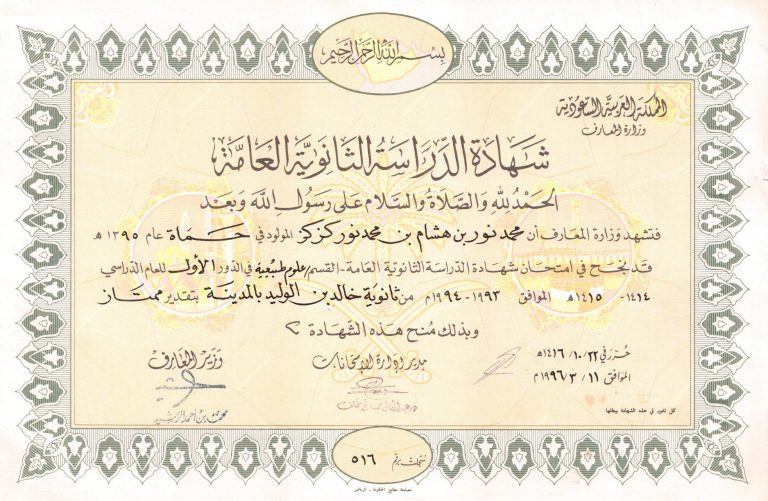 بسم الله الرحمن الرحيم
المملكة العربية السعودية
وزارة المعارف
شهادة الدراسة الثانوية العامة
الحمد لله والصلاة والسلام على رسول الله وبعد
فتشهد وزارة المعارف أن محمد نور بن هشام بن محمد نور كزكز المولود في حماة عام ١٣٩٥ هـ
قد نجح في امتحان شهادة الدراسة الثانوية العامة - القسم / علوم طبيعية في الدور الأول للعام الدراسي
١٤١٤ - ١٤١٥ هـ الموافق ١٩٩٣ - ١٩٩٤ م من ثانوية خالد بن الوليد بالمدينة بتقدير ممتاز
وبذلك مُنح هذه الشهادة
حُرّر في ٢٢ / ١٠ / ١٤١٦ هـ
الموافق ١١ / ٣ / ١٩٩٦ م
مدير إدارة الامتحانات
وزير المعارف
محمد بن أحمد الرشيد
كل تغيير في هذه الشهادة يبطلها
سُجلت برقم ٥١٦
مصلحة مطابع الحكومة - الرياض